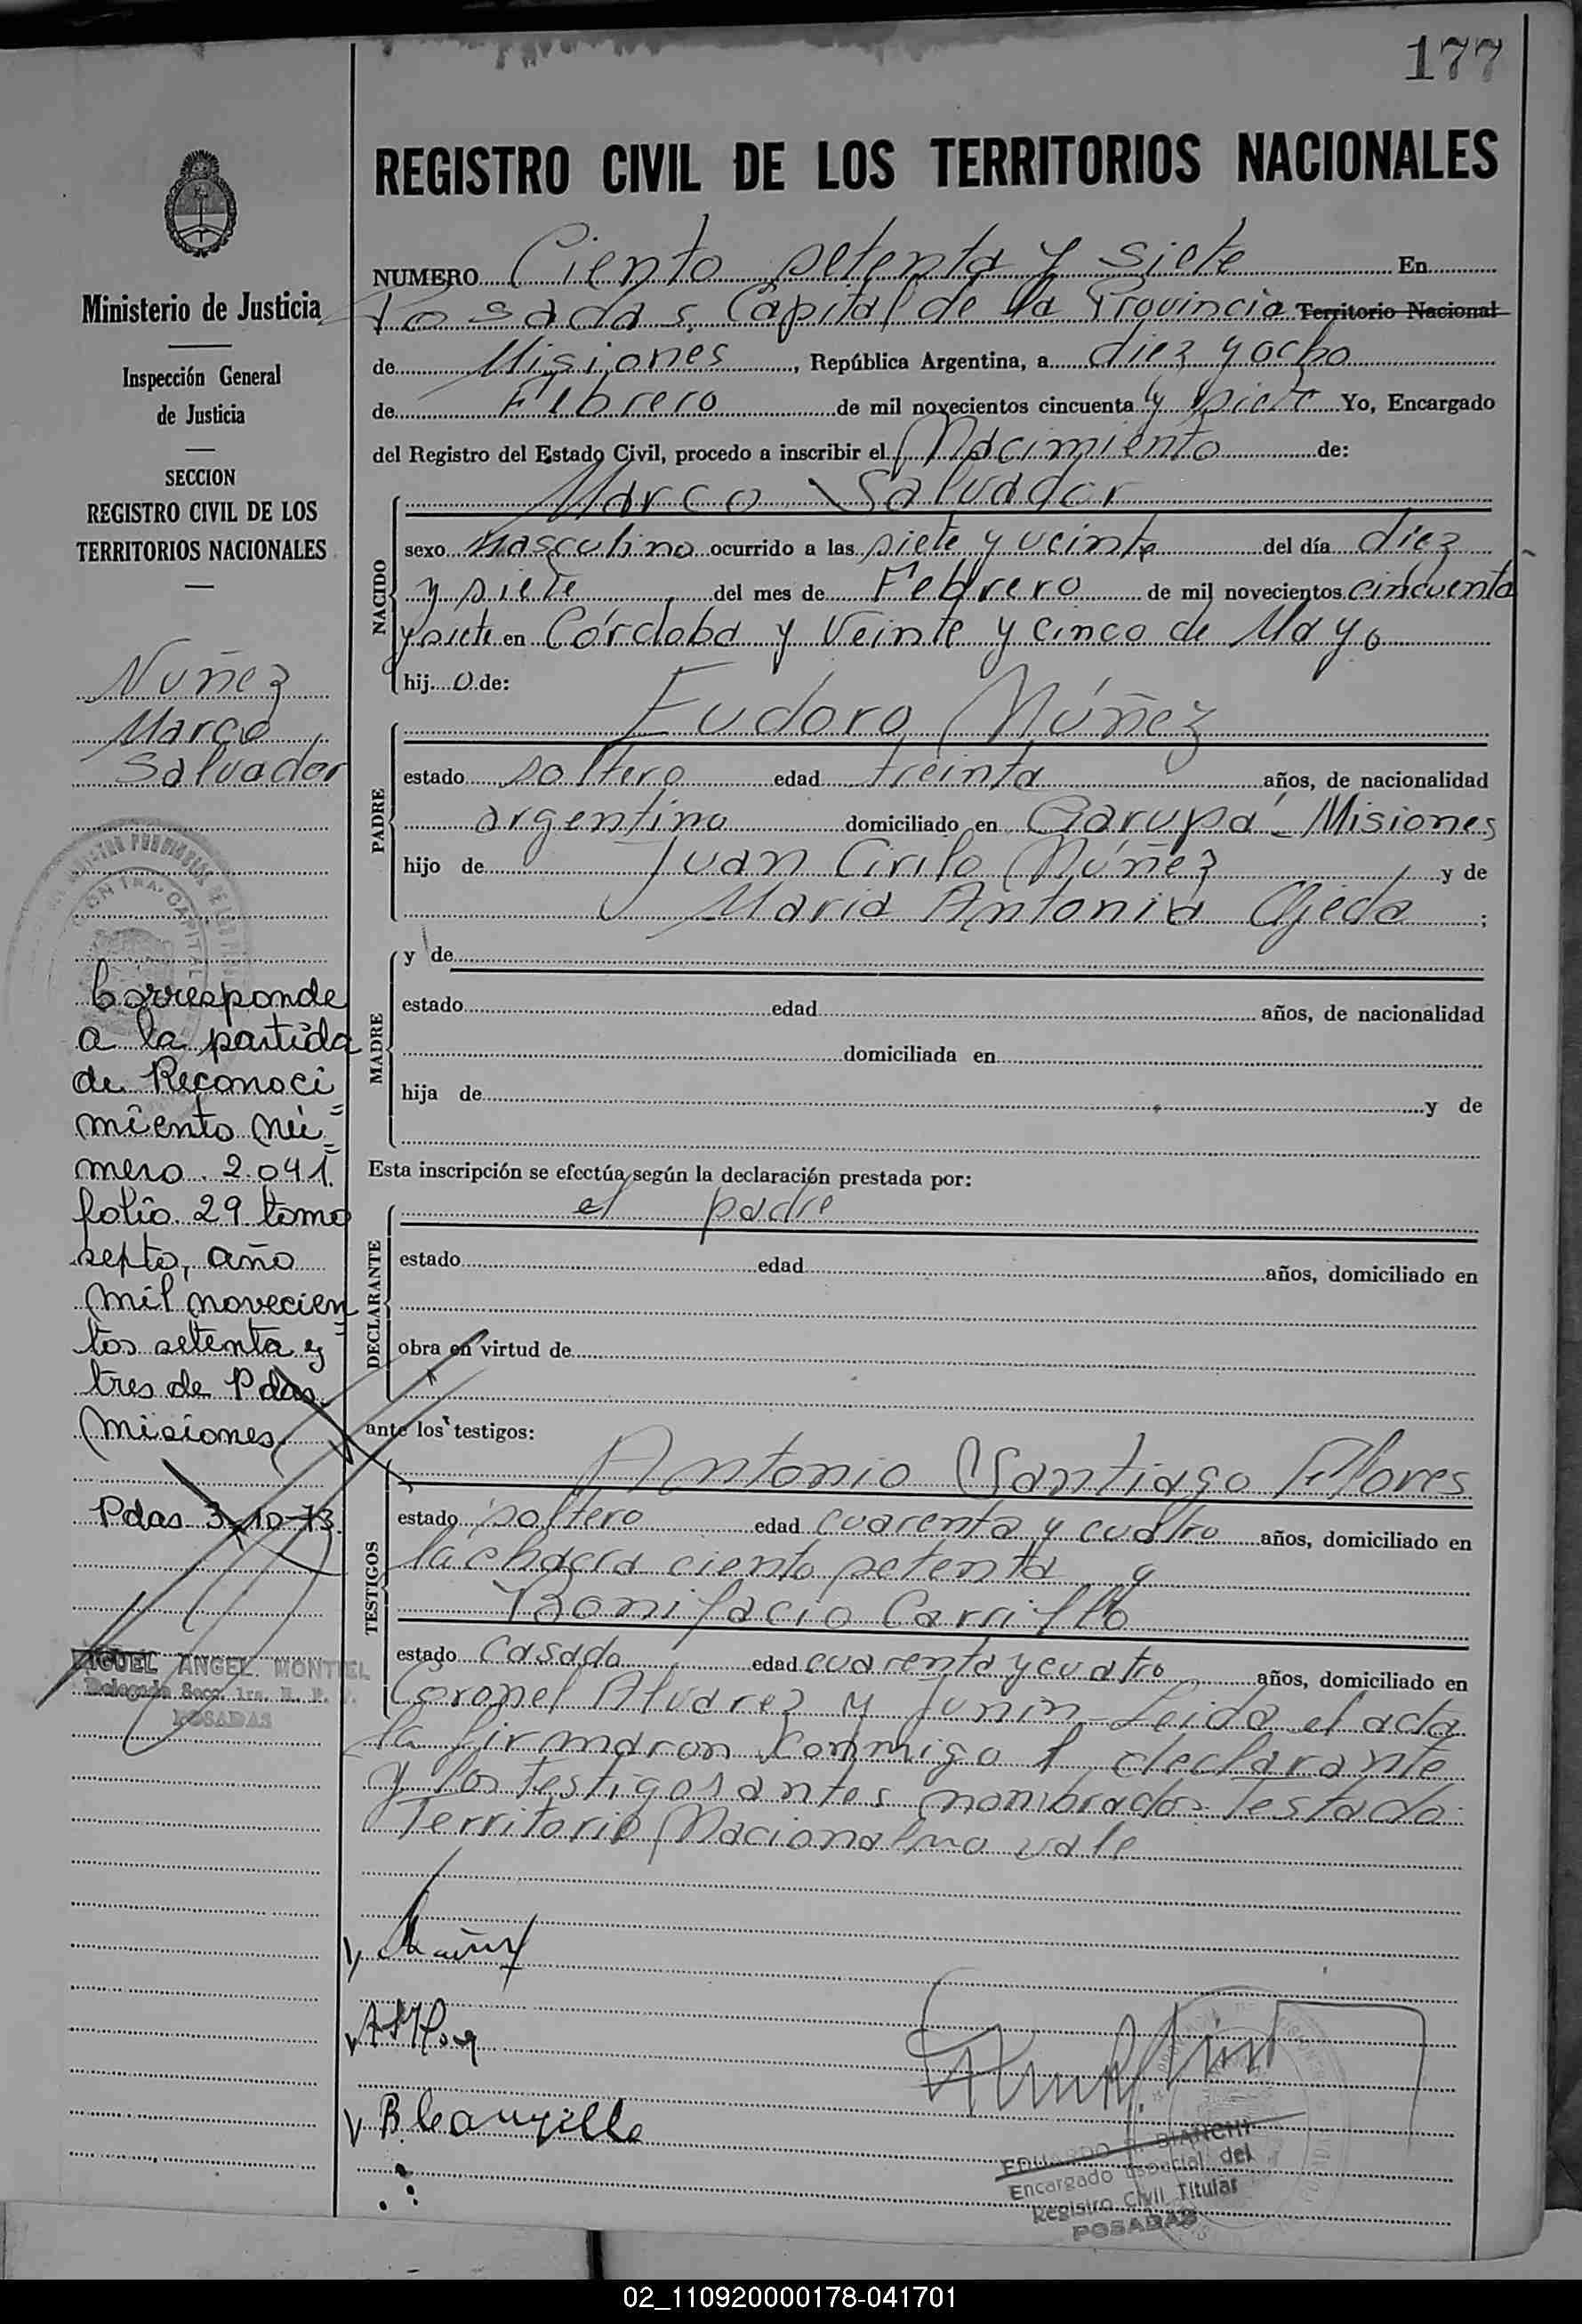 177
REGISTRO CIVIL DE LOS TERRITORIOS NACIONALES
Ministerio de Justicia
Inspección General
de Justicia
SECCION
REGISTRO CIVIL DE LOS
TERRITORIOS NACIONALES
Nuñez
Marco
Salvador
Corresponde
a la partida
de Reconoci
miento nú=
mero 2.041
folio 29 tomo
septo, año
mil novecien
tos setenta y=
tres de Pdas
Misiones
Pdas 3-10-73
MIGUEL ANGEL MONTIEL
Delegado Secc. 1ra. R. P.
POSADAS
NUMERO Ciento setenta y siete En
Posadas, Capital de la Provincia Territorio Nacional
de Misiones, República Argentina, a diez y ocho
de Febrero de mil novecientos cincuenta y siete Yo, Encargado
del Registro del Estado Civil, procedo a inscribir el Nacimiento de:
NACIDO
Marco Salvador
sexo Masculino ocurrido a las siete y veinte del día diez
y siete del mes de Febrero de mil novecientos cincuenta
y siete en Córdoba y Veinte y cinco de Mayo
hij o de:
PADRE
Eudoro Núñez
estado soltero edad treinta años, de nacionalidad
argentino domiciliado en Garupá - Misiones
hijo de Juan Cirilo Núñez y de
Maria Antonia Ojeda ;
MADRE
y de
estado edad años, de nacionalidad
domiciliada en
hija de y de
Esta inscripción se efectúa según la declaración prestada por:
DECLARANTE
el padre
estado edad años, domiciliado en
obra en virtud de
ante los testigos:
TESTIGOS
Antonio Santiago Flores
estado soltero edad cuarenta y cuatro años, domiciliado en
la chacra ciento setenta y
Bonifacio Carrillo
estado casado edad cuarenta y cuatro años, domiciliado en
Coronel Alvarez y Junin - Leida el acta
la firmaron conmigo el declarante
y los testigos antes nombrados. Testado:
Territorio Nacional no vale
B Carrillo
EDUARDO BIANCHI
Encargado Especial del
Registro Civil Titular
POSADAS
02_110920000178-041701